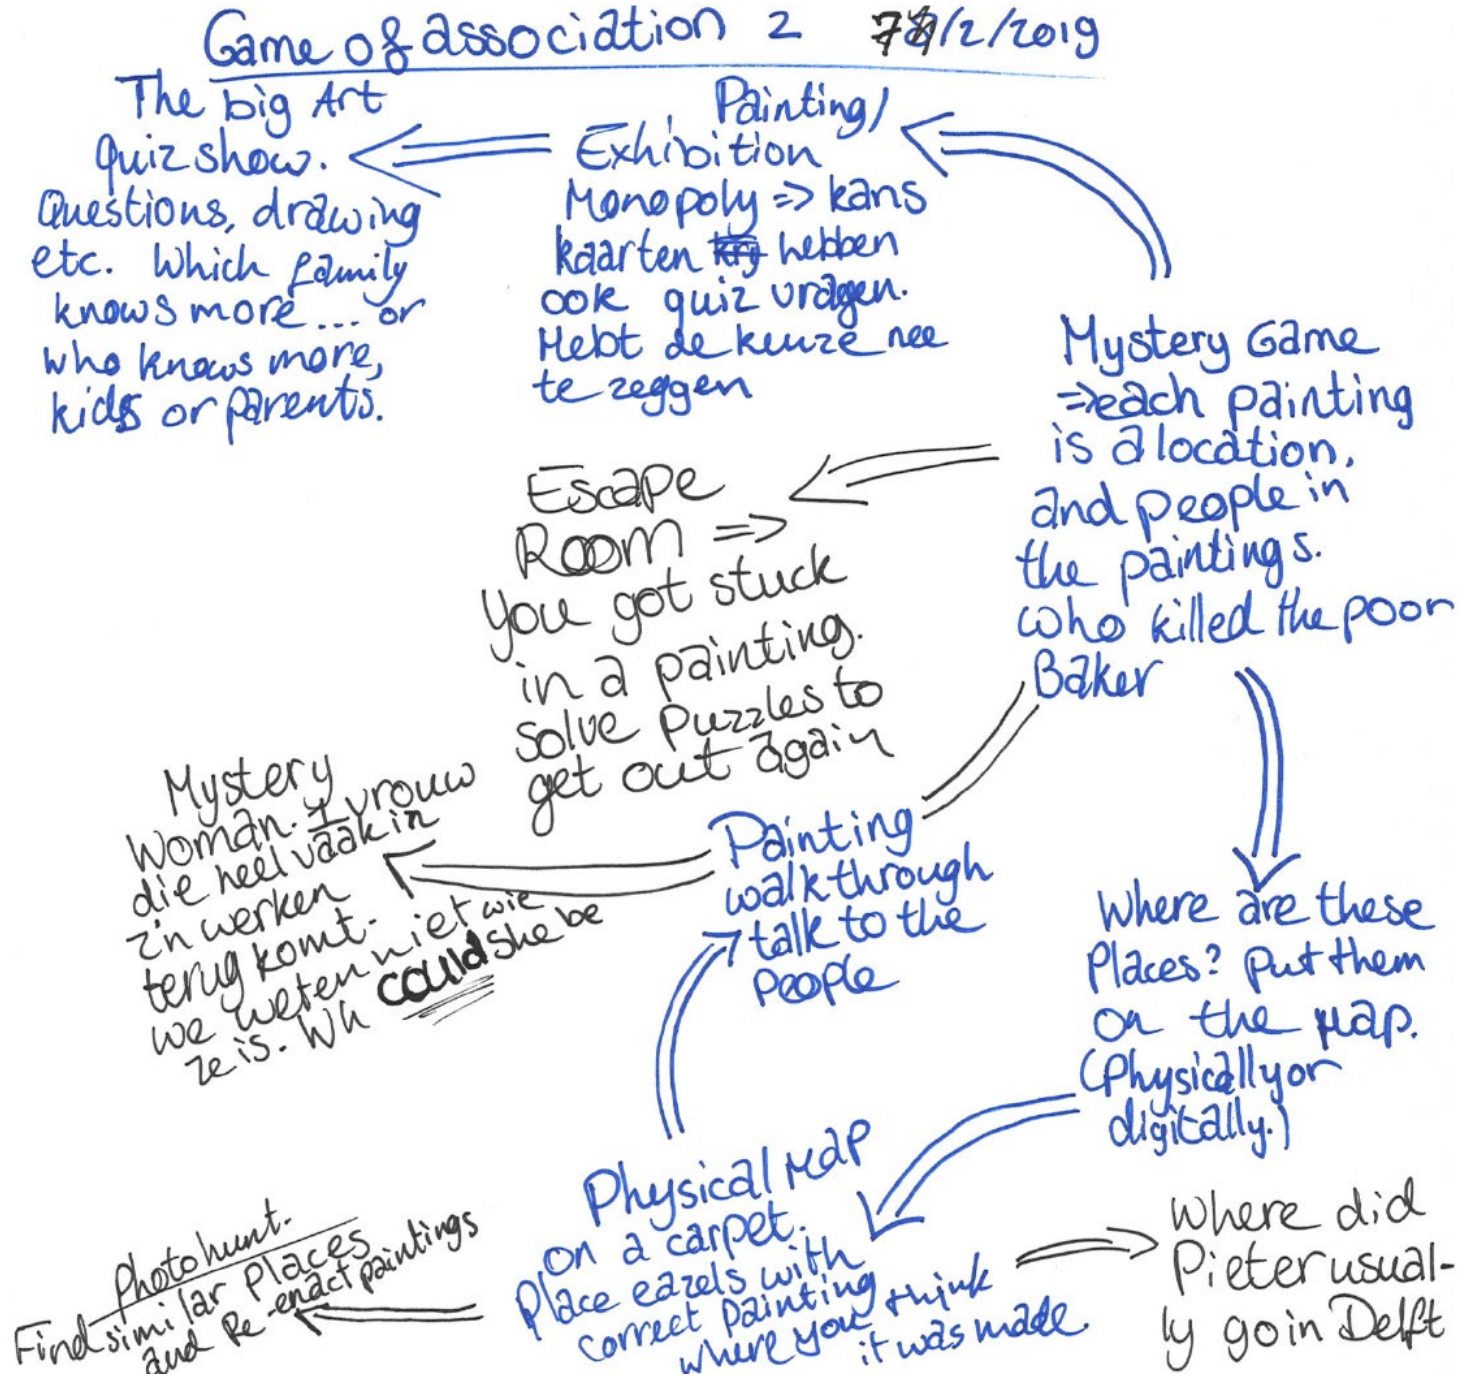 Game of association 2
/2/2019
The big Art
quiz show.
Questions, drawing
etc. Which family
knows more... or
who knows more,
kids or parents.
Painting/
Exhibition
Monopoly => kans
kaarten hebben
ook quiz vragen.
Hebt de keuze nee
te zeggen
Mystery Game
=> each painting
is a location,
and people in
the paintings.
who killed the poor
Baker
Escape
Room =>
You got stuck
in a painting.
Solve Puzzles to
get out again
Mystery
woman. 1 vrouw
die heel vaak in
z'n werken
terug komt.
we weten niet wie
ze is. Wh could she be
Painting
walkthrough
talk to the
People
Where are these
Places? Put them
on the Map.
(Physically or
digitally.)
Physical Map
on a carpet.
Place eazels with
correct painting
where you think
it was made.
Where did
Pieter usual-
ly go in Delft
Photohunt.
Find similar Places
and Re-enact paintings